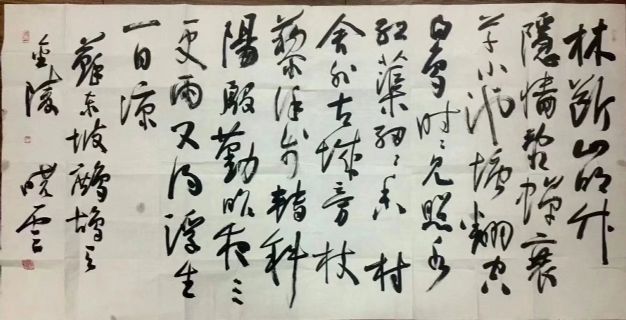 林斷山明竹
隱墻亂蟬衰
草小池塘翻空
白鳥時々見照水
紅蕖細々香村
舍外古城旁杖
藜徐步轉斜
陽殷勤昨夜三
更雨又得浮生
一日涼
蘇東坡鷓鴣天
金陵 曉雲